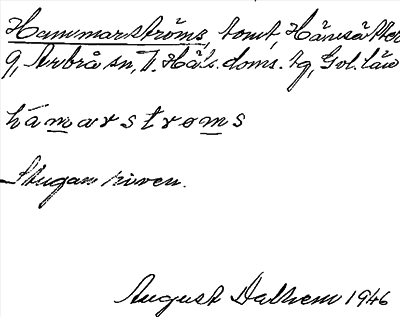 Hammarströms, tomt, Hänsätter
g, Arbrå sn, V. Hä:s. doms. tg, Gvl. län
hámarstroms
Stugan riven.
August Dalhem 1946